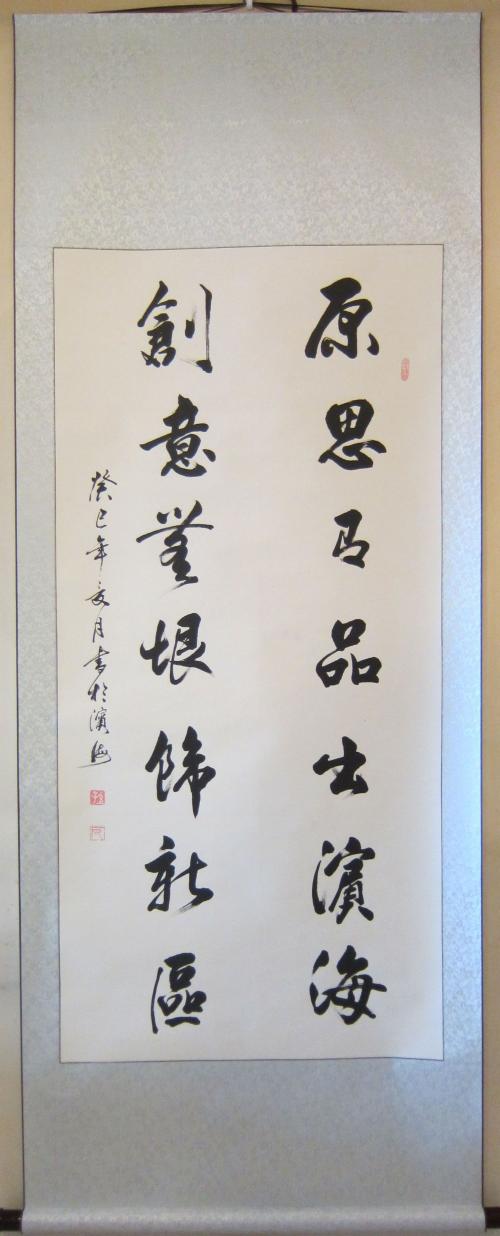 原思品出濱海
創意無垠飾新區
癸巳年亥月書於濱海